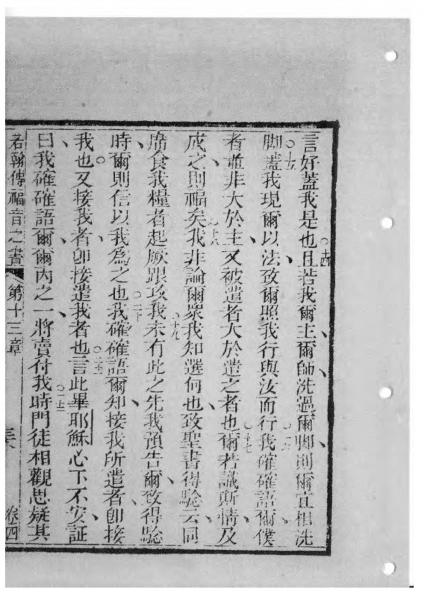 言好蓋我是也○十四且若我爾主爾師洗過爾脚則爾宜相洗
脚○十五蓋我現爾以法致爾照我行與汝而行○十六我確確語爾僕
者並非大於主又被遣者大於遣之者也○十七爾若識斯情及
成之則福矣○十八我非論爾衆我知選何也致聖書得驗云同
席食我糧者起厥跟攻我○十九未有此之先我預告爾致得驗
時爾則信以我為之也○二十我確確語爾知接我所遣者卽接
我也又接我者卽接遣我者也○二十一言此畢耶穌心下不安証
曰我確確語爾爾內之一將賣付我○二十二時門徒相觀思疑其
若翰傳福音之書 第十三章 卷四